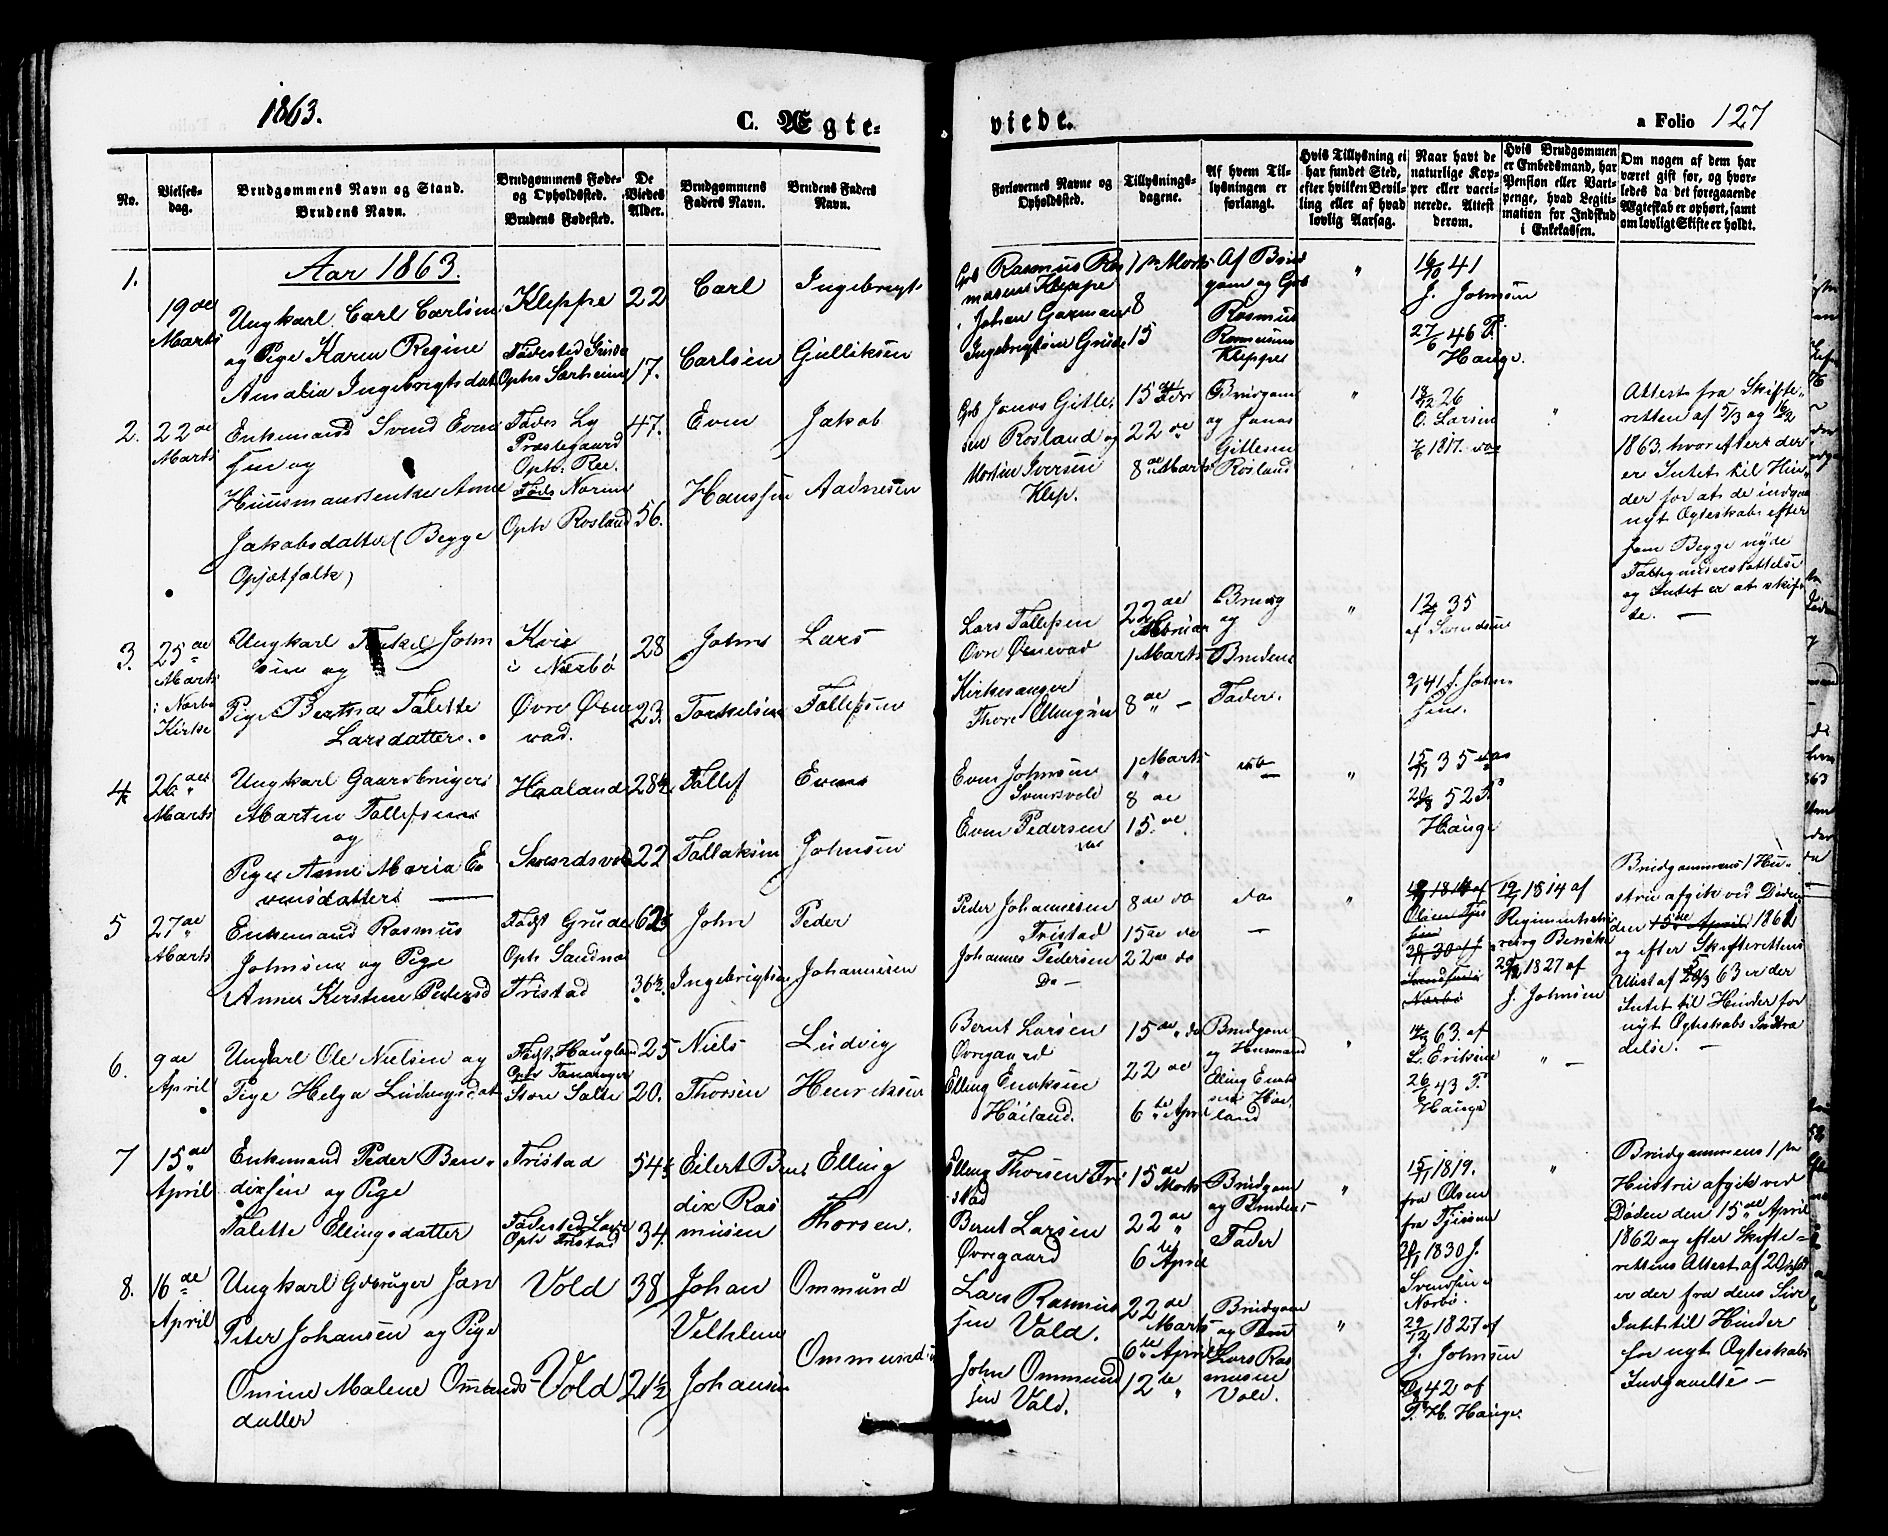 1863.
C. Ægte-
viede.
a Folio 127
No.
Vielses-
dag.
Brudgommens Navn og Stand.
Brudens Navn.
Brudgommens Føde-
og Opholdssted.
Brudens Fødested.
De
Viedes
Alder.
Brudgommens
Faders Navn.
Brudens Faders
Navn.
Forlovernes Navne og
Opholdssted.
Tillysnings-
dagene.
Af hvem Til-
lysningen er
forlangt.
Hvis Tillysning ei
har fundet Sted,
efter hvilken Bevil-
ling eller af hvad
lovlig Aarsag.
Naar havt de
naturlige Kop-
per eller vacci-
nerede. Attest
derom.
Hvis Brudgommen
er Embedsmand, har
Pension eller Vart-
penge, hvad Legiti-
mation for Indskud
i Enkekassen.
Om nogen af dem har
været gift før, og hvor-
ledes da det foregaaende
Ægteskab er ophørt, samt
om lovligt Skifte er holdt.
Aar 1863.
1.
19de
Marts
Ungkarl Carl Carlsen
og Pige Karen Regine
Amalia Ingebrigtsdat
Kleppe
Fødested Grude
Ophr Særheim
22
17.
Carl
Carlsen
Ingebrigt
Gulliksen
Grb Rasmus Ras
musen Kleppe
Johan Garman
Ingebrigtsen Grude
1ste Marts
8
15
Af Brud
gom og Grb
Rasmus
Rasmusen
Kleppe
"
16/10 41
J. Johnsen
27/6 46 P.
Hauge.
2.
22de
Marts
Enkemand Svend Even
sen og
Huusmandsenke Anne
Jakobsdatter (Begge
Fødes Ly
Præstegaard
Ophr Ree.
Føds Nærim
Ophr Rosland
47.
56.
Even
Hanssen
Jakob
Aadnesen
Grb Jonas Gitle
sen Rosland og
Morten Iversen
Klep.
15 Febr
22de
8de Marts
Brudgom
og Jonas
Gitlesen
Rosland
"
26
O. Larsen
1817. do
"
Attest fra Skifte-
retten af 5/3 og
1863 hvorefter der
er Intet til Hin
der for at de indgaa
nyt Ægteskab efter
som Begge nyde
Fattigunderstøttelse
og Intet er at skif
te. —
3.
25de
Marts
i Nærbø
Kirke
Ungkarl Torkel John
sen og
Pige Bertha Talette
Larsdatter.
Kvie
i Nærbø
Øvre Ørne
vad.
28
23.
John
Torkelsen
Lars
Tollefsen
Lars Tollefsen
Øvre Ørnevad
Kirkesanger
Thore Ellingsen
22de
Februar
1 Marts
8de " —
Brudg
og
Brudens
Fader.
"
35
af Svendsen
41 J. John
sen.
4
26de
Marts
Ungkarl Gaardbruger
Morten Tollefsen
og
Pige Anne Maria E
vensdatter —
Haaland
28½
22
Tollef
Tollaksen
Even
Johnsen
Even Johnsen
Even Pedersen
1 Marts
8de
15de
do
—
"
35 do
52 P.
Hauge
5
27de
Marts
Enkemand Rasmus
Johnsen og Pige
Anne Kirstine Pedersd
Fødst Grude
Ophr Sandnæs
Tristad
62½
36½.
John
Ingebrigtsen
Peder
Johannesen
Peder Johannesen
Tristad
Johannes Pedersen
Do —
8de do
15de do
22de do
do
—
"
1814 af
Regiments
1827 af
J. Johnsen
Brudgommens 1 Hu-
stru afgik ved Døden
den 15de April 1861
og efter Skifterettens
Attest af 63 er der
Intet til Hinder for
nyt Ægteskabs Indtræ
delse. —
6.
9de
April
Ungkarl Ole Nielsen og
Pige Helga Ludvigsdat
Fødst. Haugland
Ophr Tananger
Store Salte
25
20.
Niels
Thorsen
Ludvig
Henriksen
Bernt Larsen
Øvregaard
Elling Eriksen
Høiland.
15de do
22de
6te April
Brudgom
og Huusmand
Elling Erik
sen Høi
land
"
63. af
L. Eriksen
26/6 43 P.
Hauge
" —
7
15de
April
Enkemand Peder Ben-
dixsen og Pige
Talette Ellingsdatter
Tristad
Fødested Laxe
Ophr Tristad
54½
34.
Eilert Ben
dix Ras
mussen
Elling
Thorsen.
Elling Thorsen Tri
stad
Bernt Larsen
Øvregaard
15de
Marts
22de "
6te
April
Brudgom
og Brudens
Fader
"
15/11 1819.
fra Olsen
fra Tjessem
1830 J.
Svendsen
Nærbø.
"
Brudgommens 1ste
Hustru afgik ved
Døden den 15de April
1862 og efter Skifte-
rettens Attest af
er der fra dens Side
Intet til Hinder
for nyt Ægteskabs
Indgaaelse —
8.
16de
April
Ungkarl Gbruger Jan
Peter Johansen og Pige
Omine Malene Ommunds
datter
Vold
Vold
38
21½
Johan
Velhelm
Johansen
Ommund
Ommundsen
Lars Rasmus
sen Vold.
John Ommund
sen Vold.
22de
Marts
6te April
12te "
Brudgom
og Grb
Lars Ras
mussen
Vold.
"
29/12 1827 af
J. Johnsen
42 af
P. H. Hauge.